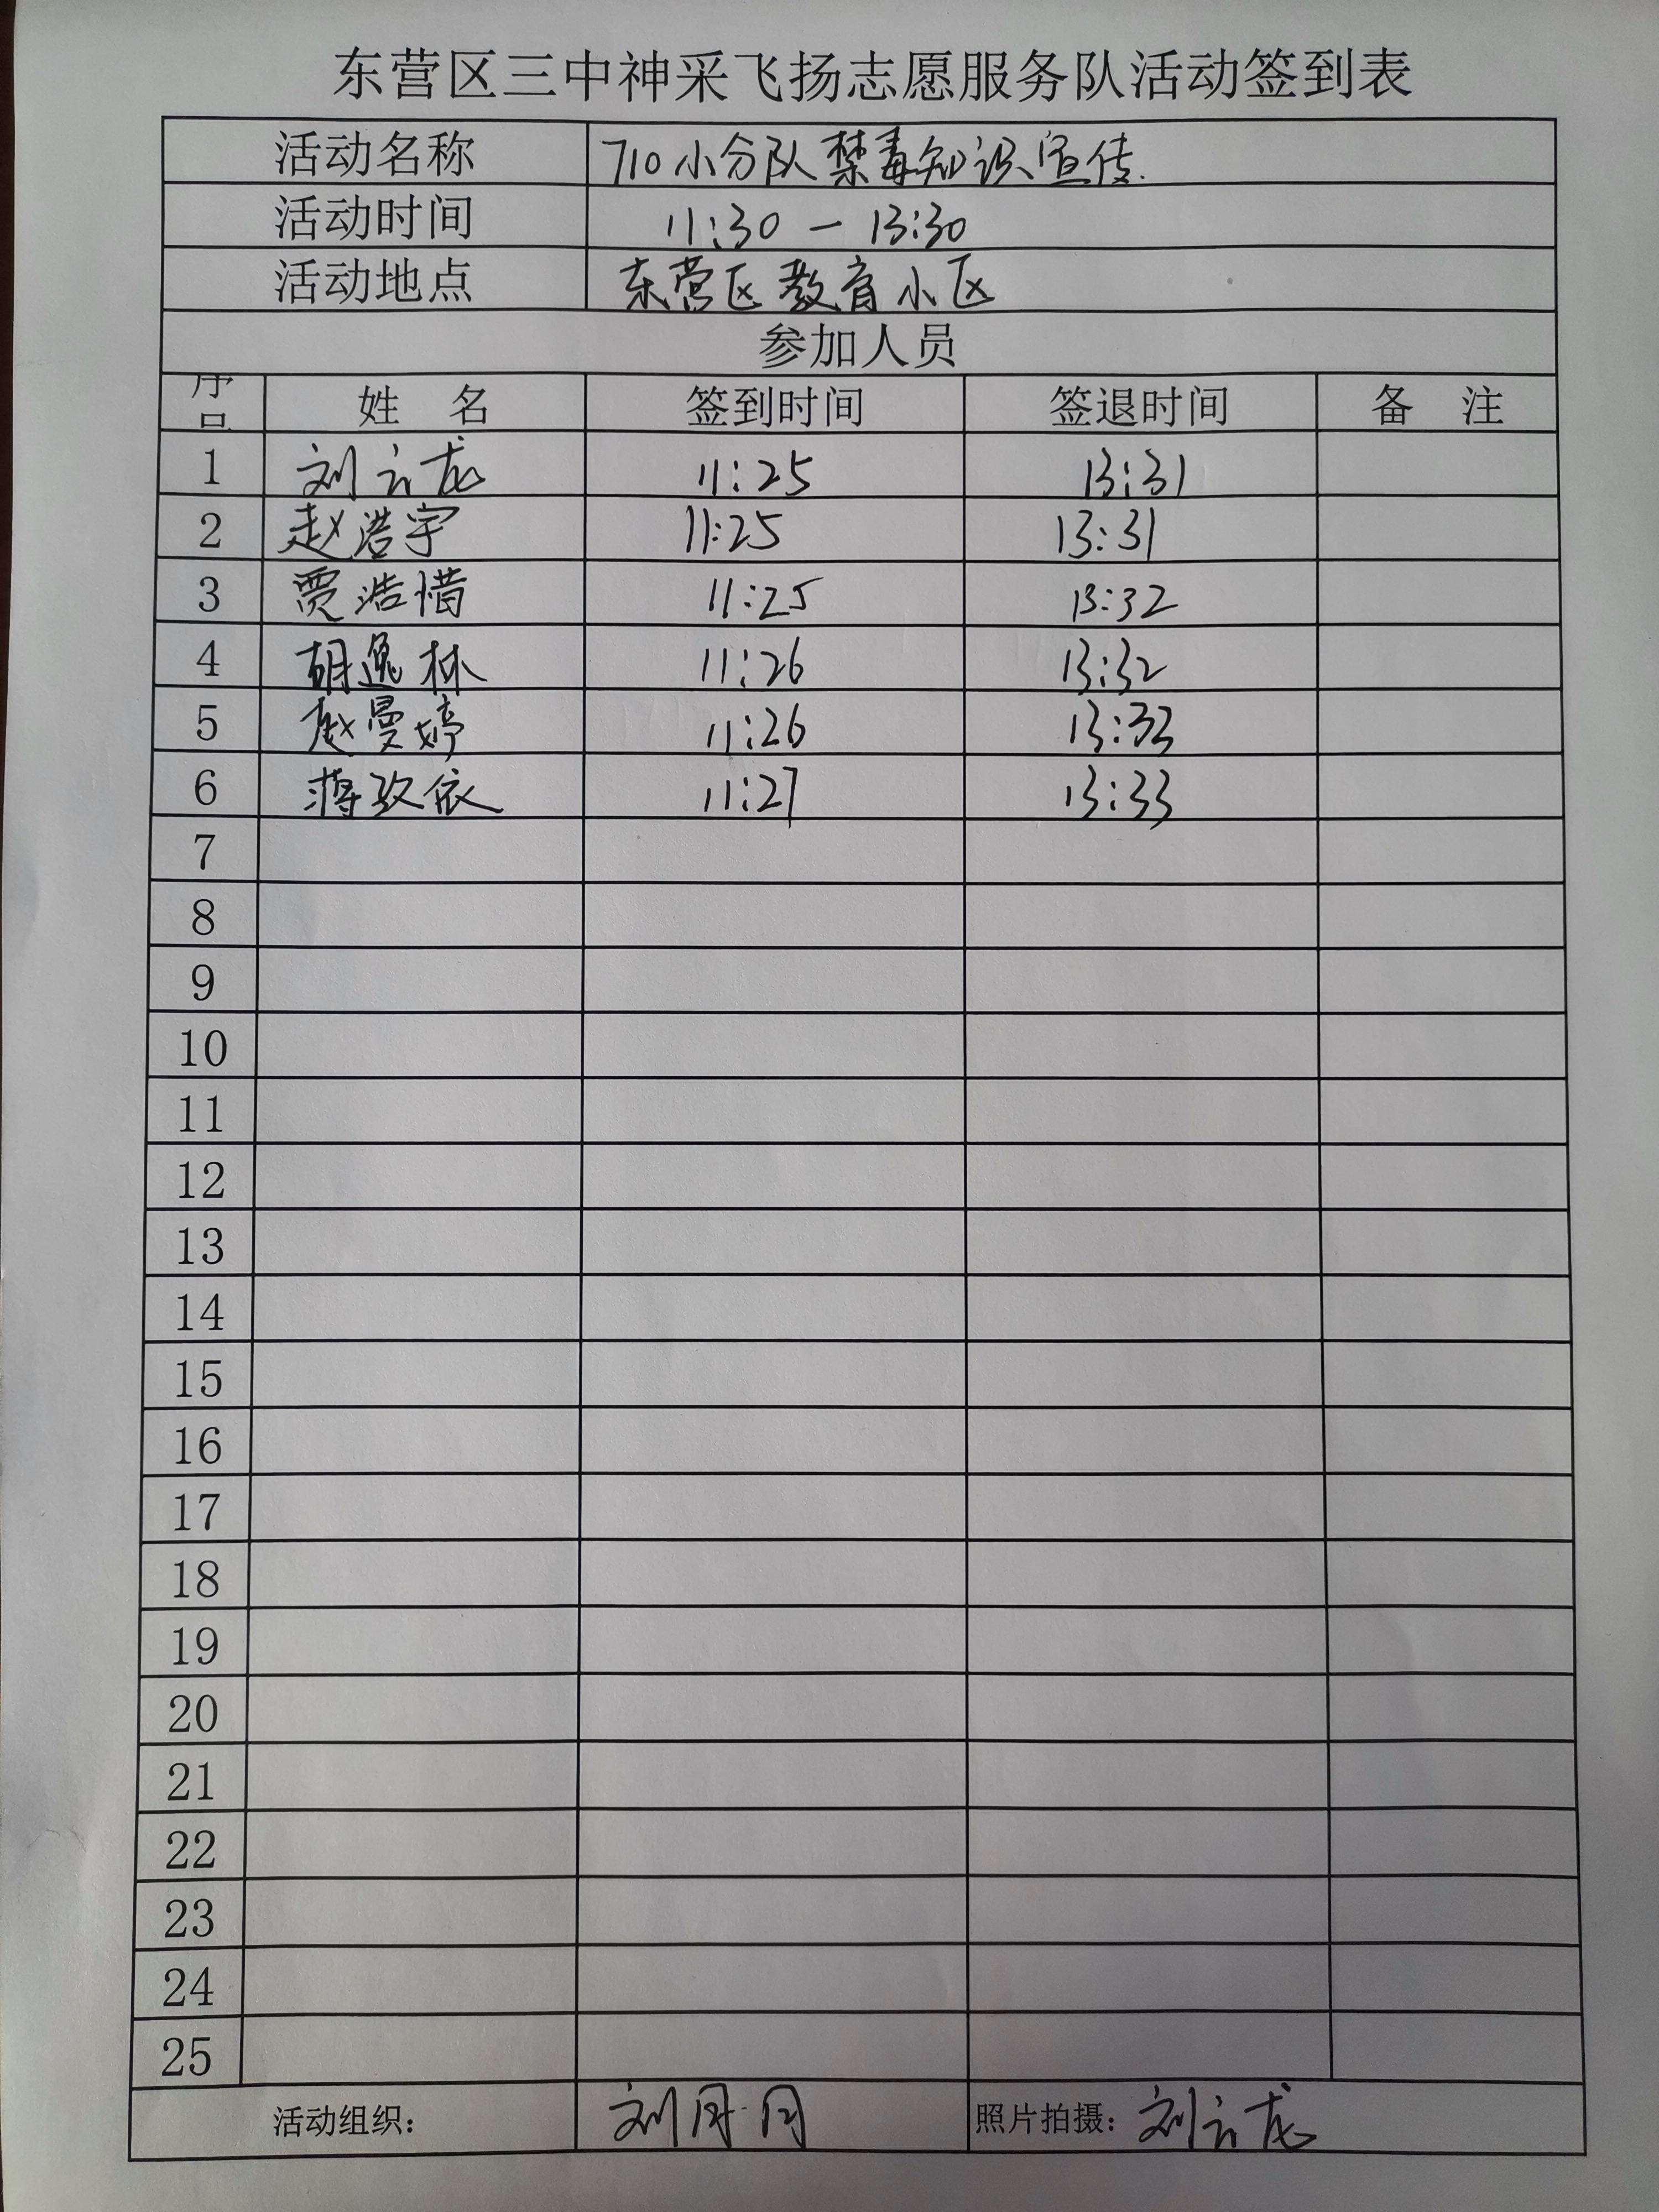 东营区三中神采飞扬志愿服务队活动签到表
活动名称 710小分队禁毒知识宣传.
活动时间 11:30 — 13:30
活动地点 东营区教育小区
参加人员
序号 姓 名 签到时间 签退时间 备 注
1 刘云龙 11:25 13:31
2 赵浩宇 11:25 13:31
3 贾浩惜 11:25 13:32
4 胡逸林 11:26 13:32
5 赵曼婷 11:26 13:33
6 蒋孜依 11:27 13:33
7
8
9
10
11
12
13
14
15
16
17
18
19
20
21
22
23
24
25
活动组织： 刘月月 照片拍摄：刘云龙